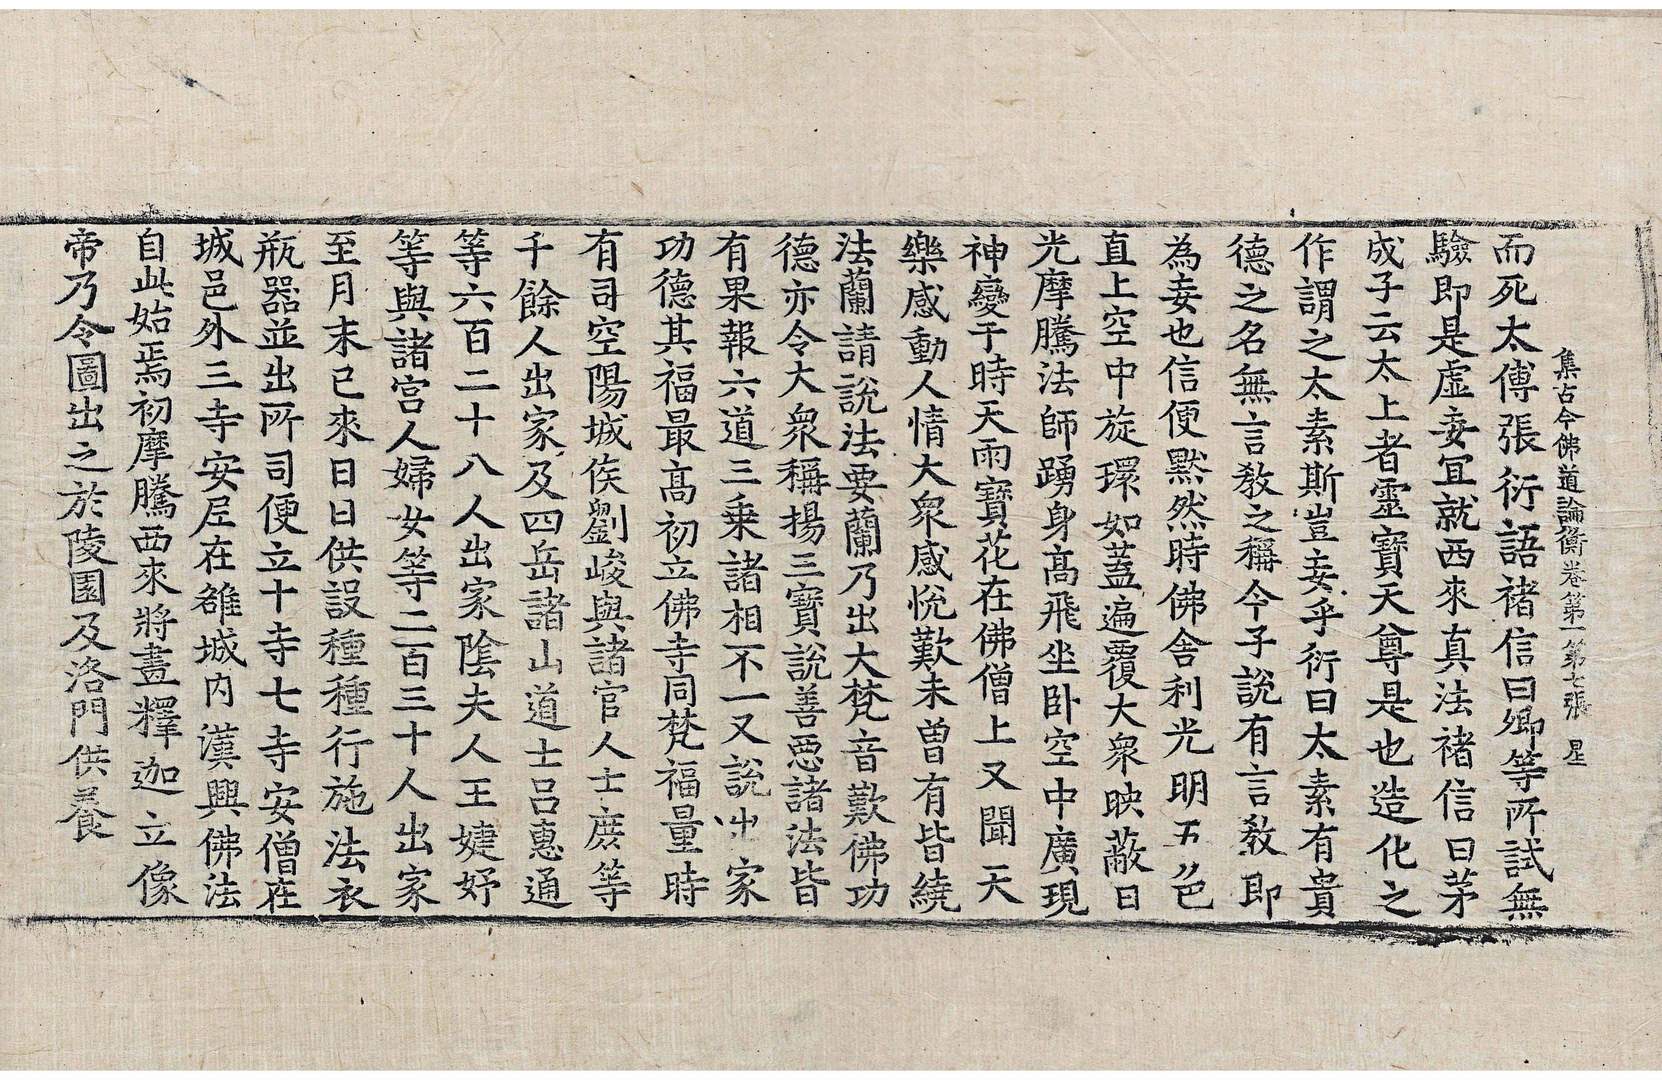 集古今佛道論衡卷第一第七張　星
而死太傅張衍語褚信曰卿等所試無
驗即是虛妄冝就西來真法褚信曰茅
成子云太上者靈寶天尊是也造化之
作謂之太素斯豈妄乎衍曰太素有貴
德之名無言敎之稱今子說有言敎即
為妄也信便默然時佛舍利光明五色
直上空中旋環如蓋遍覆大衆映蔽日
光摩騰法師踴身高飛坐卧空中廣現
神變于時天雨寶花在佛僧上又聞天
樂感動人情大衆感悅歎未曾有皆繞
法蘭請說法要蘭乃出大梵音歎佛功
德亦令大衆稱揚三寶說善惡諸法皆
有果報六道三乗諸相不一又說出家
功德其福最高初立佛寺同梵福量時
有司空陽城侯劉峻與諸官人士庶等
千餘人出家及四岳諸山道士呂惠通
等六百二十八人出家陰夫人王婕妤
等與諸宮人婦女等二百三十人出家
至月末已來日日供設種種行施法衣
瓶器並出所司便立十寺七寺安僧在
城邑外三寺安尼在雒城内漢興佛法
自此始焉初摩騰西來將畫釋迦立像
帝乃令圖出之於陵園及洛門供養